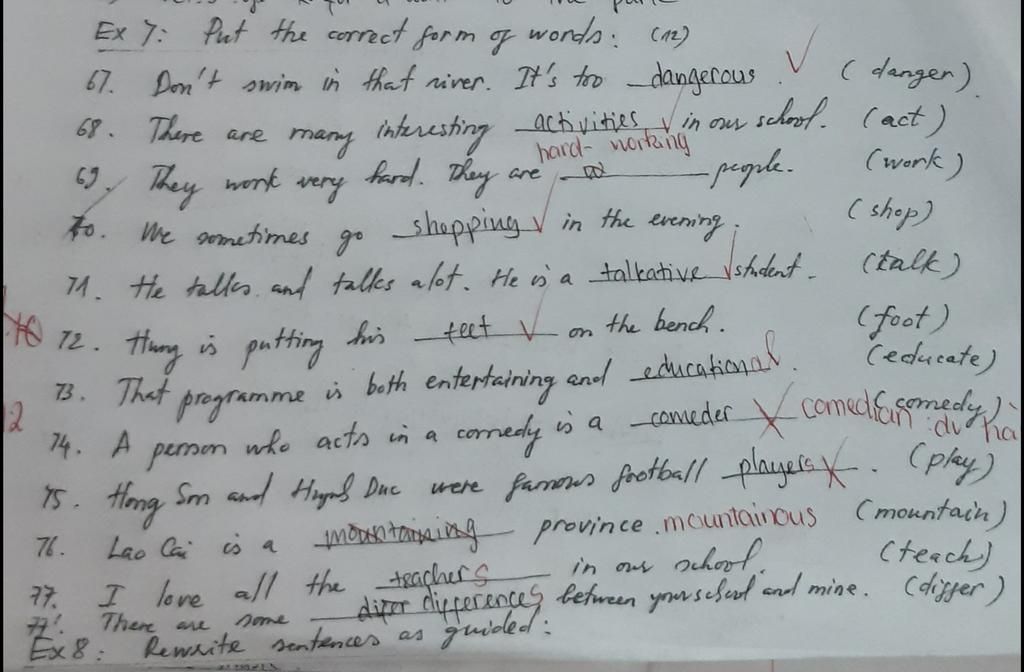 Ex 7: Put the correct form of words: (12)
67. Don't swim in that river. It's too dangerous. (danger)
68. There are many interesting activities in our school. (act)
hard-working
69. They work very hard. They are people. (work)
70. We sometimes go shopping in the evening. (shop)
71. He talks and talks alot. He is a talkative student. (talk)
72. Hung is putting his feet on the bench. (foot)
73. That programme is both entertaining and educational. (educate)
74. A person who acts in a comedy is a comeder comedian (comedy)
75. Hong Son and Huynh Duc were famous football players. (play)
76. Lao Cai is a mountaining province. mountainous (mountain)
77. I love all the teachers in our school. (teach)
77'. There are some difer differences between your school and mine. (differ)
Ex 8: Rewrite sentences as guided: